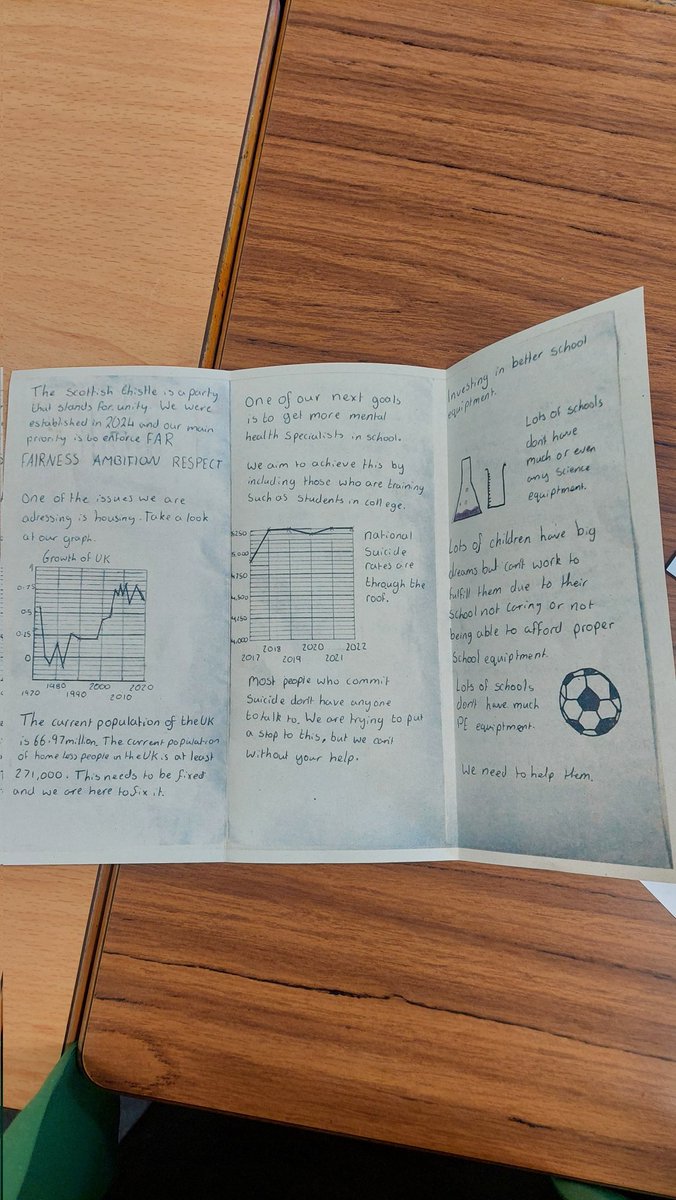 The Scottish thistle is a party
that stands for unity. We were
established in 2024 and our main
priority is to enforce FAR
FAIRNESS AMBITION RESPECT
One of the issues we are
adressing is housing. Take a look
at our graph.
Growth of UK
1
0.75
0.5
0.25
0
1970 1980 1990 2000 2010 2020
The current population of the UK
is 66.97million. The current population
of homeless people in the UK is at least
271,000. This needs to be fixed
and we are here to fix it.
One of our next goals
is to get more mental
health specialists in school.
We aim to achieve this by
including those who are training
such as students in college.
National
Suicide
rates are
through the
roof.
4,000
2017 2018 2019 2020 2021 2022
Most people who commit
suicide don't have anyone
to talk to. We are trying to put
a stop to this, but we can't
without your help.
Investing in better school
equiptment.
Lots of schools
don't have
much or even
any science
equiptment.
Lots of children have big
dreams but can't work to
fulfill them due to their
school not caring or not
being able to afford proper
school equiptment.
Lots of schools
don't have much
PE equiptment.
We need to help them.